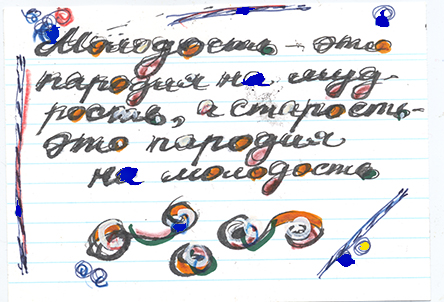 Молодость – это
пародия на муд-
рость, а старость-
это пародия
на молодость